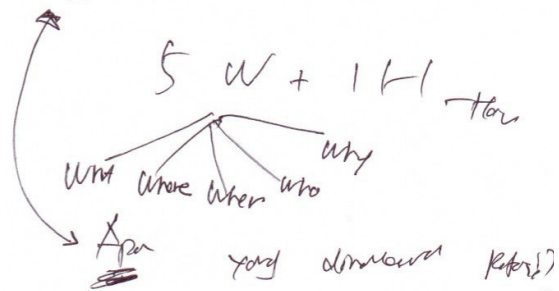 5 W + 1 H How
What Where When Who Why
Apa yang dimaksud